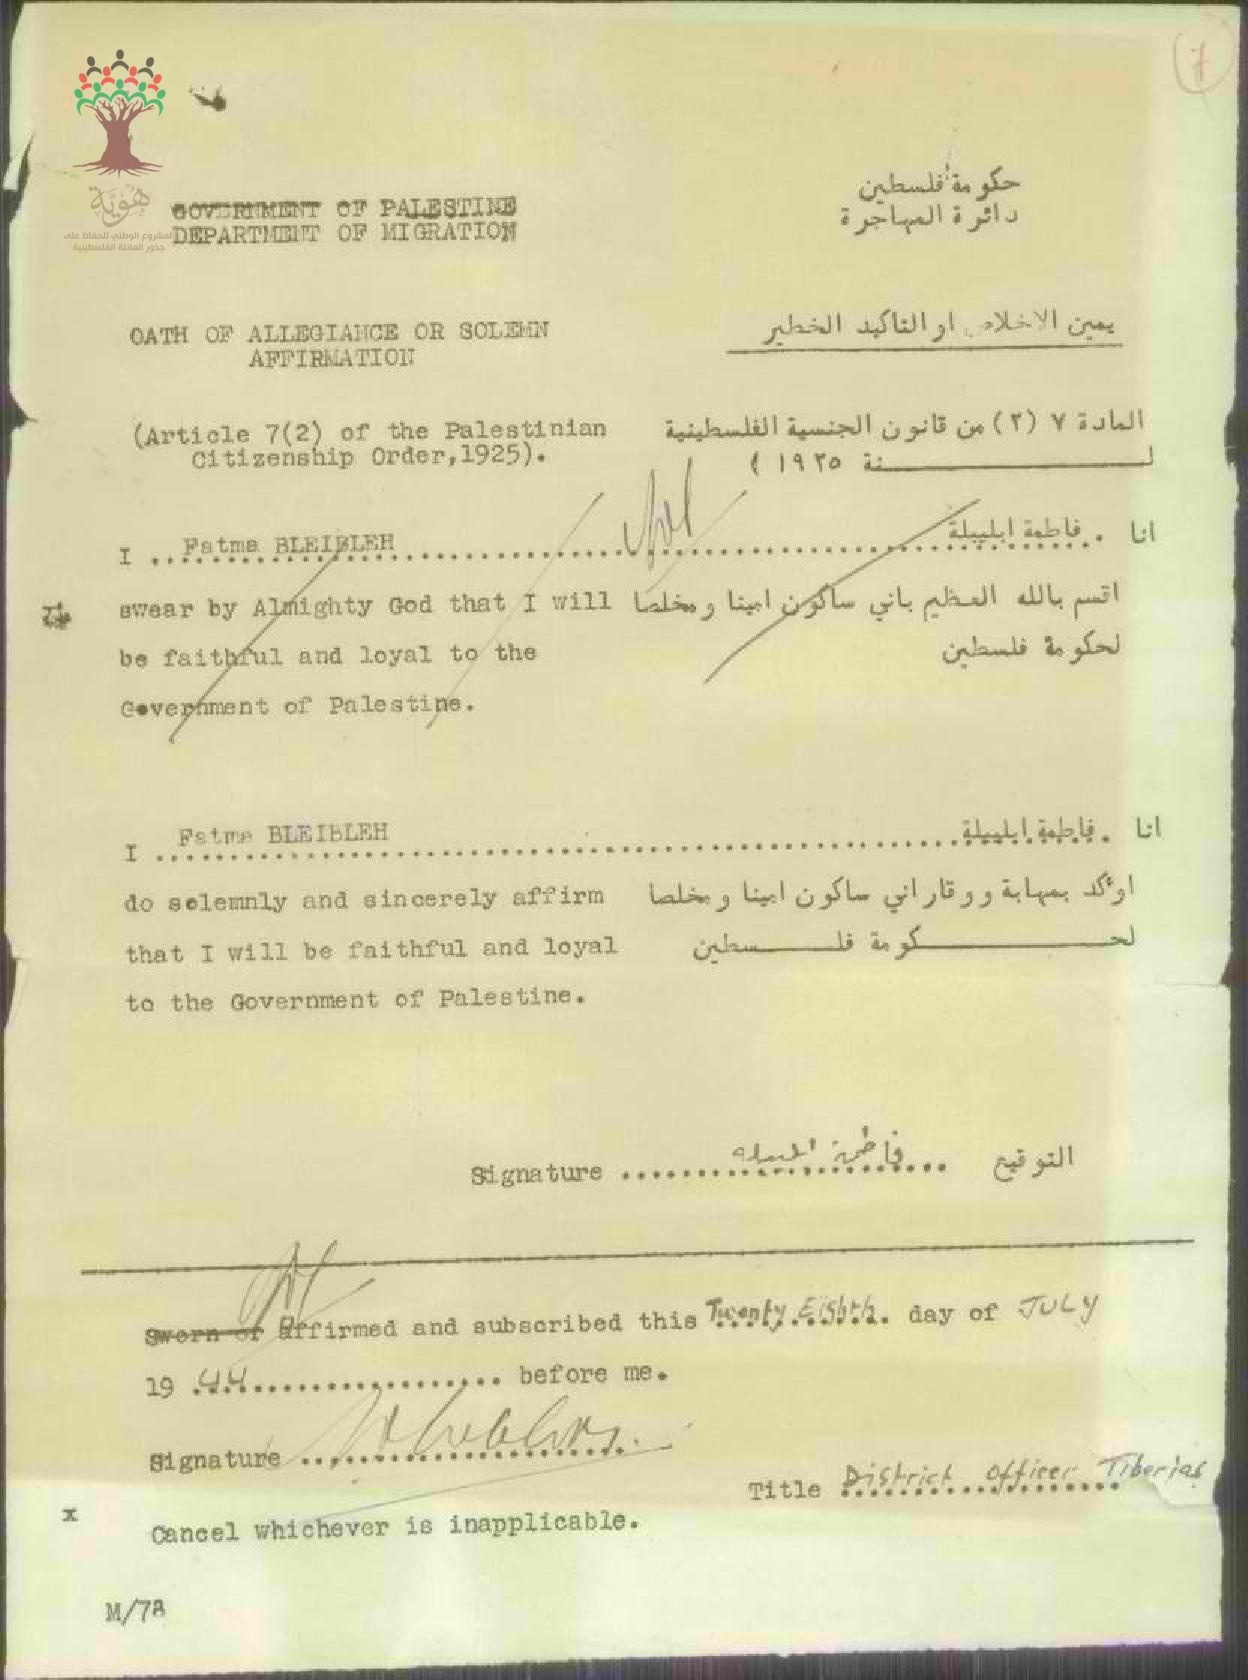 7
هوية
المشروع الوطني للحفاظ على
جذور العائلة الفلسطينية
GOVERNMENT OF PALESTINE
DEPARTMENT OF MIGRATION
حكومة فلسطين
دائرة المهاجرة
OATH OF ALLEGIANCE OR SOLEMN
AFFIRMATION
يمين الاخلاص او التاكيد الخطير
(Article 7(2) of the Palestinian
Citizenship Order,1925).
المادة ٧ (٢) من قانون الجنسية الفلسطينية
لسنة ١٩٢٥ )
I .. Fatma BLEIBLEH
انا . فاطمة ابليبلة
swear by Almighty God that I will
be faithful and loyal to the
Government of Palestine.
اقسم بالله العظيم باني ساكون امينا و مخلصا
لحكومة فلسطين
I Fatma BLEIBLEH
انا . فاطمة ابليبلة
do solemnly and sincerely affirm
that I will be faithful and loyal
to the Government of Palestine.
اوٴكد بمهابة ووقار اني ساكون امينا و مخلصا
لحكومة فلسطين
Signature فاطمة التوقيع
Sworn or affirmed and subscribed this Twenty Eighth day of JULY
19 44 before me.
Signature
Title District Officer Tiberias
x
Cancel whichever is inapplicable.
M/78